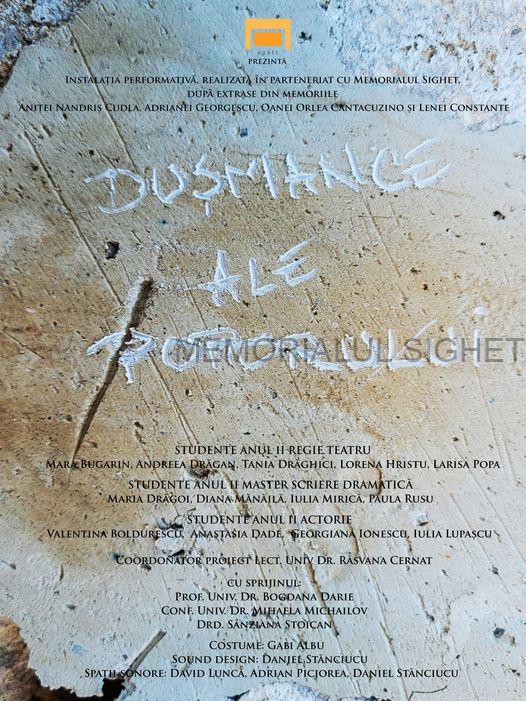 u.n.a.t.c.
PREZINTĂ
INSTALAȚIA PERFORMATIVĂ, REALIZATĂ ÎN PARTENERIAT CU MEMORIALUL SIGHET,
DUPĂ EXTRASE DIN MEMORIILE
ANIȚEI NANDRIȘ CUDLA, ADRIANEI GEORGESCU, OANEI ORLEA CANTACUZINO ȘI LENEI CONSTANTE
DUȘMANCE
ALE
POPORULUI
MEMORIALUL SIGHET
STUDENTE ANUL II REGIE TEATRU
MARA BUGARIN, ANDREEA DRĂGAN, TANIA DRĂGHICI, LORENA HRISTU, LARISA POPA
STUDENTE ANUL II MASTER SCRIERE DRAMATICĂ
MARIA DRĂGOI, DIANA MĂNĂILĂ, IULIA MIRICĂ, PAULA RUSU
STUDENTE ANUL II ACTORIE
VALENTINA BOLDURESCU, ANASTASIA DADE, GEORGIANA IONESCU, IULIA LUPAȘCU
COORDONATOR PROIECT LECT. UNIV DR. RĂSVANA CERNAT
CU SPRIJINUL:
PROF. UNIV. DR. BOGDANA DARIE
CONF. UNIV. DR. MIHAELA MICHAILOV
DRD. SÂNZIANA STOICAN
COSTUME: GABI ALBU
SOUND DESIGN: DANIEL STĂNCIUCU
SPAȚII SONORE: DAVID LUNCĂ, ADRIAN PICIOREA, DANIEL STĂNCIUCU